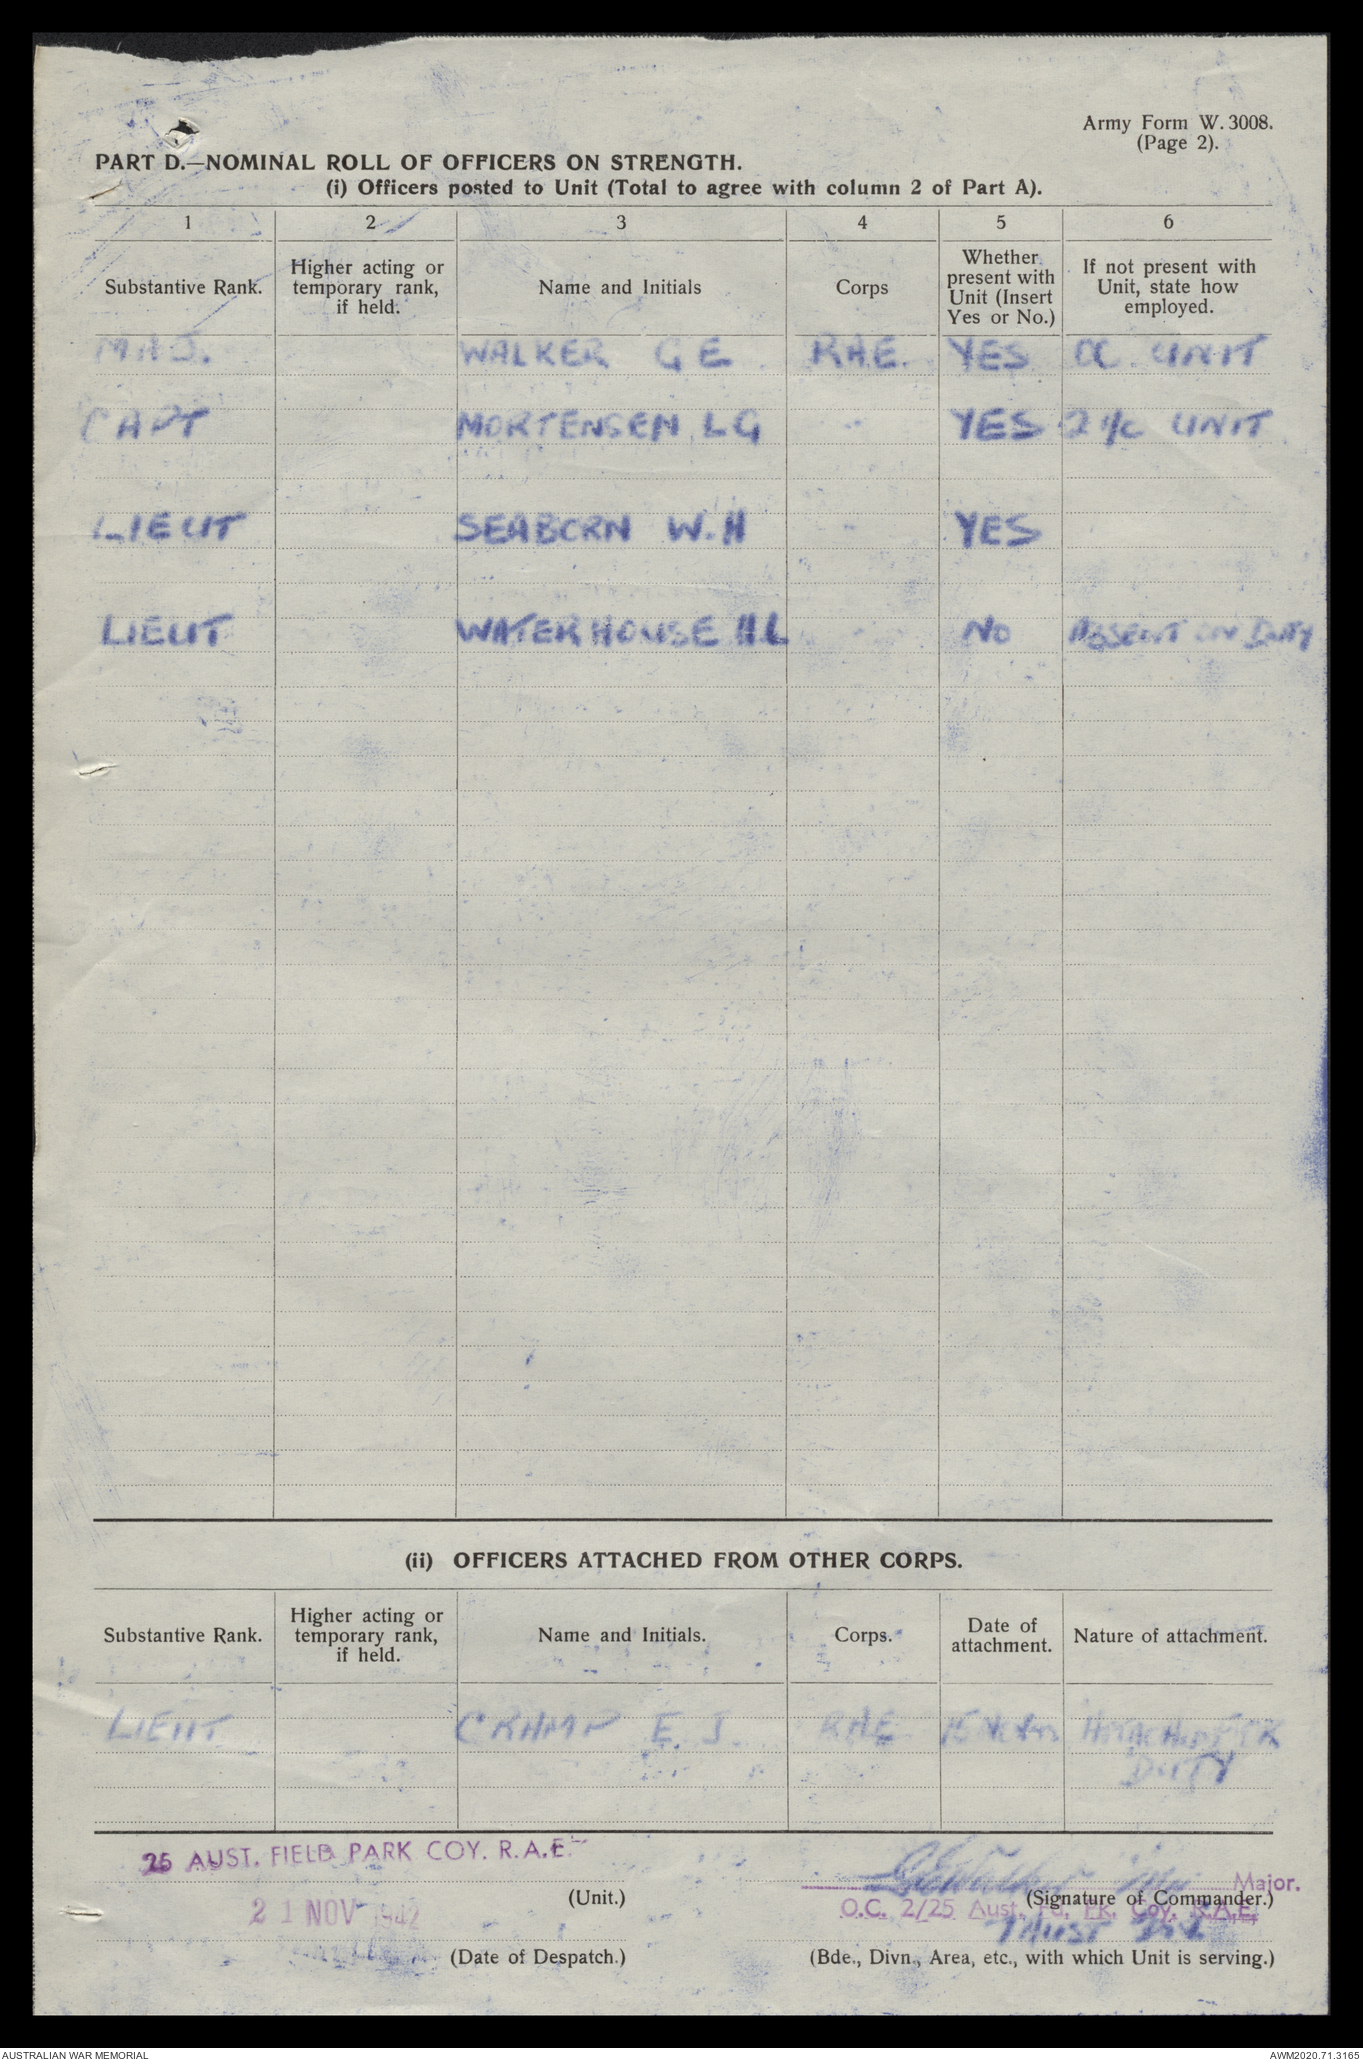 Army Form W. 3008.
(Page 2).
PART D.—NOMINAL ROLL OF OFFICERS ON STRENGTH.
(i) Officers posted to Unit (Total to agree with column 2 of Part A).
1 2 3 4 5 6
Substantive Rank. Higher acting or temporary rank, if held. Name and Initials Corps Whether present with Unit (Insert Yes or No.) If not present with Unit, state how employed.
MAJ. WALKER G E RAE. YES OC. UNIT
CAPT MORTENSEN LG " YES 2 i/c UNIT
LIEUT SEABORN W.H " YES
LIEUT WATERHOUSE H.L NO ABSENT ON DUTY
(ii) OFFICERS ATTACHED FROM OTHER CORPS.
Substantive Rank. Higher acting or temporary rank, if held. Name and Initials. Corps. Date of attachment. Nature of attachment.
LIEUT CRAMP E. J. RAE 15 ATTACHED FOR
DUTY
25 AUST. FIELD PARK COY. R.A.E.
GEWalker Maj Major.
(Unit.) (Signature of Commander.)
21 NOV 1942 O.C. 2/25 Aust. Fd. PK. Coy. R.A.E.
7 Aust Div
(Date of Despatch.) (Bde., Divn., Area, etc., with which Unit is serving.)
AUSTRALIAN WAR MEMORIAL AWM2020.71.3165